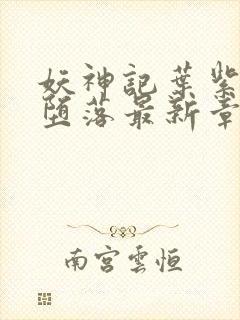 妖神記葉紫
墮落最新章
南宮雲恒